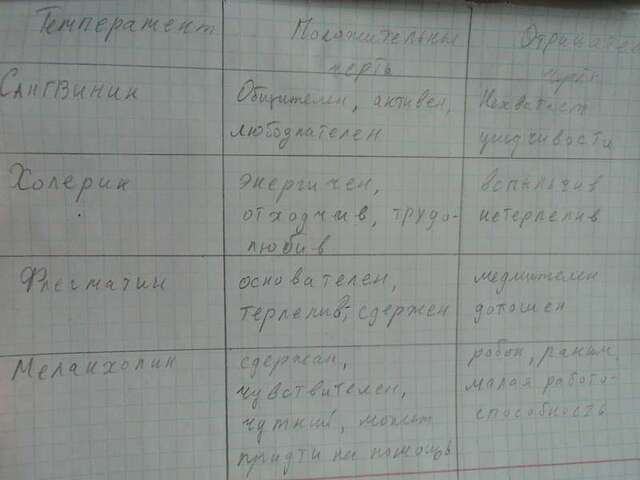 Темперамент
Положительные
черты
Отрицател
черты
Сангвиник
Общителен, активен,
любознателен
Нехватает
усидчивости
Холерик
энергичен,
отходчив, трудо-
любив
вспыльчив
нетерпелив
Флегматик
основателен,
терпелив, сдержен
медлителен
дотошен
Меланхолик
сдержан,
чувствителен,
чуткий, может
придти на помощь
робок, раним,
малая работо-
способность